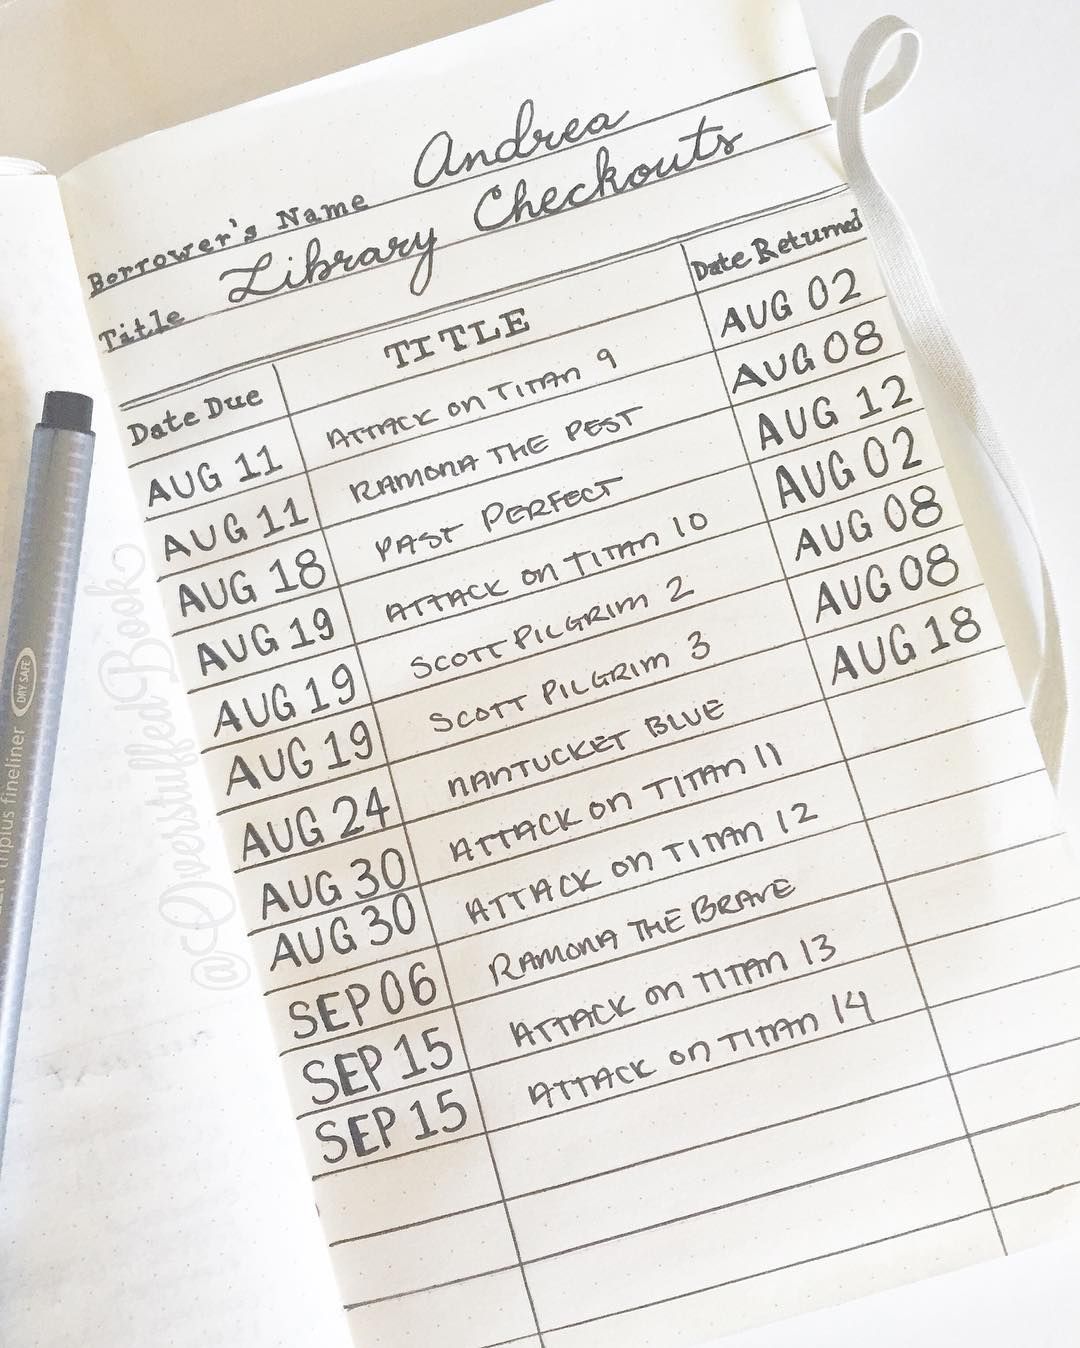 Borrower's Name Andrea
Title Library Checkouts
Date Due TITLE Date Returned
AUG 11 ATTACK on TITAN 9 AUG 02
AUG 11 RAMONA THE PEST AUG 08
AUG 18 PAST PERFECT AUG 12
AUG 19 ATTACK on TITAN 10 AUG 02
AUG 19 SCOTT PILGRIM 2 AUG 08
AUG 19 SCOTT PILGRIM 3 AUG 08
AUG 24 NANTUCKET BLUE AUG 18
AUG 30 ATTACK on TITAN 11
AUG 30 ATTACK on TITAN 12
SEP 06 RAMONA THE BRAVE
SEP 15 ATTACK on TITAN 13
SEP 15 ATTACK on TITAN 14
@OverstuffedBook
triplus fineliner DRY SAFE